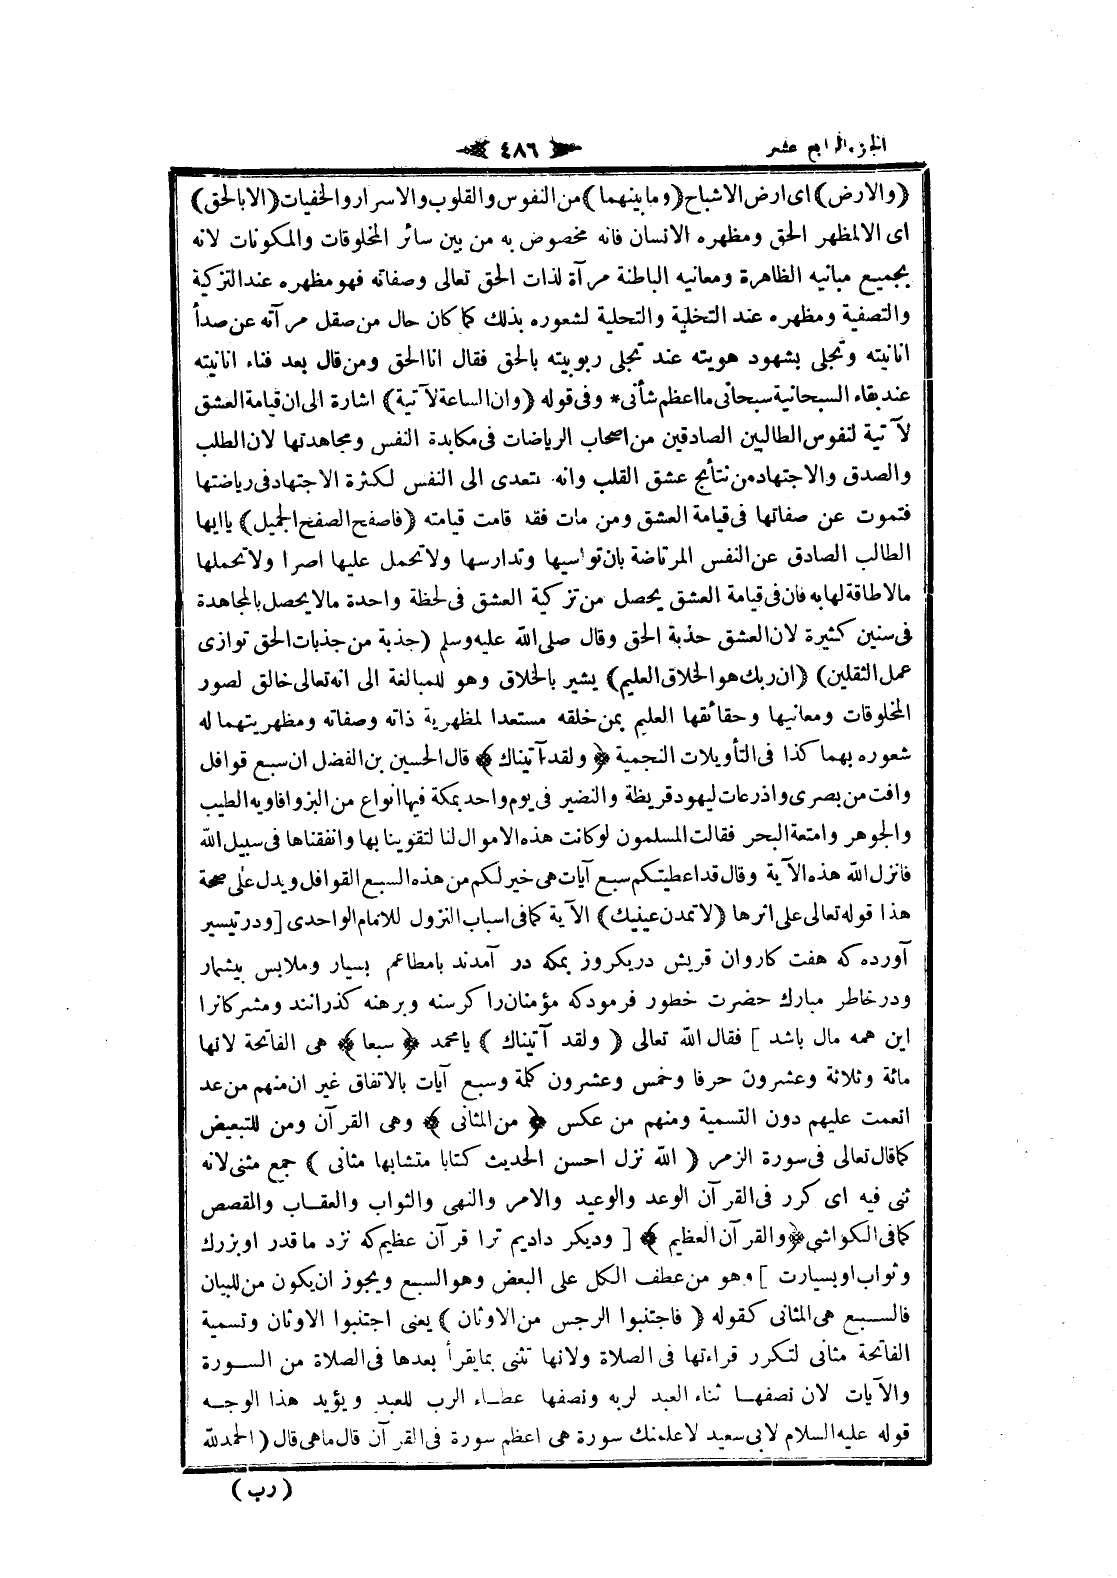 الجزء الرابع عشر ٤٨٦
(والارض) اى ارض الاشباح (وما بينهما) من النفوس والقلوب والاسرار والخفيات (الا بالحق)
اى الا لمظهر الحق ومظهره الانسان فانه مخصوص به من بين سائر المخلوقات والمكونات لانه
بجميع مبانيه الظاهرة ومعانيه الباطنة مرآة لذات الحق تعالى وصفاته فهو مظهره عند التزكية
والتصفية ومظهره عند التخلية والتحلية لشعوره بذلك كما كان حال من صقل مرآته عن صدأ
انانيته وتجلى بشهود هويته عند تجلى ربوبيته بالحق فقال انا الحق ومن قال بعد فناء انانيته
عند بقاء السبحانية سبحانى ما اعظم شأنى * وفى قوله (وان الساعة لآتية) اشارة الى ان قيامة العشق
لآتية لنفوس الطالبين الصادقين من اصحاب الرياضات فى مكابدة النفس ومجاهدتها لان الطلب
والصدق والاجتهاد من نتأئج عشق القلب وانه يتعدى الى النفس لكثرة الاجتهاد فى رياضتها
فتموت عن صفاتها فى قيامة العشق ومن مات فقد قامت قيامته (فاصفح الصفح الجميل) ياايها
الطالب الصادق عن النفس المرتاضة بان تواسيها وتدارسها ولا تحمل عليها اصرا ولا تحملها
مالا طاقة لها به فان فى قيامة العشق يحصل من تزكية العشق فى لحظة واحدة مالا يحصل بالمجاهدة
فى سنين كثيرة لان العشق جذبة الحق وقال صلى الله عليه وسلم (جذبة من جذبات الحق توازى
عمل الثقلين) (ان ربك هو الخلاق العليم) يشير بالخلاق وهو للمبالغة الى انه تعالى خالق لصور
المخلوقات ومعانيها وحقائقها العليم بمن خلقه مستعدا لمظهرية ذاته وصفاته ومظهريتهما له
شعوره بهما كذا فى التأويلات النجمية ﴿ولقد آتيناك﴾ قال الحسين بن الفضل ان سبع قوافل
وافت من بصرى واذرعات ليهود قريظة والنضير فى يوم واحد بمكة فيها انواع من البز وافاويه الطيب
والجوهر وامتعة البحر فقالت المسلمون لوكانت هذه الاموال لنا لتقوينا بها وانفقناها فى سبيل الله
فانزل الله هذه الآية وقال قد اعطيتكم سبع آيات هى خير لكم من هذه السبع القوافل ويدل على صحة
هذا قوله تعالى على اثرها (لا تمدن عينيك) الآية كما فى اسباب النزول للامام الواحدى [ودر تيسير
آورده كه هفت كاروان قريش دريكروز بمكه در آمدند بامطاعم بسيار وملابس بيشمار
ودر خاطر مبارك حضرت خطور فرمود كه مؤمنان را كرسنه وبرهنه كذرانند ومشركانرا
اين همه مال باشد] فقال الله تعالى (ولقد آتيناك) يا محمد ﴿سبعا﴾ هى الفاتحة لانها
مائة وثلاثة وعشرون حرفا وخمس وعشرون كلمة وسبع آيات بالاتفاق غير ان منهم من عد
انعمت عليهم دون التسمية ومنهم من عكس ﴿من المثانى﴾ وهى القرآن ومن للتبعيض
كما قال تعالى فى سورة الزمر (الله نزل احسن الحديث كتابا متشابها مثانى) جمع مثنى لانه
ثنى فيه اى كرر فى القرآن الوعد والوعيد والامر والنهى والثواب والعقاب والقصص
كما فى الكواشى ﴿والقرآن العظيم﴾ [وديكر داديم ترا قرآن عظيم كه نزد ما قدر او بزرك
وثواب او بسيارت] وهو من عطف الكل على البعض وهو السبع ويجوز ان يكون من للبيان
فالسبع هى المثانى كقوله (فاجتنبوا الرجس من الاوثان) يعنى اجتنبوا الاوثان وتسمية
الفاتحة مثانى لتكرر قراءتها فى الصلاة ولانها تثنى بما يقرأ بعدها فى الصلاة من السورة
والآيات لان نصفها ثناء العبد لربه ونصفها عطاء الرب للعبد ويؤيد هذا الوجه
قوله عليه السلام لابى سعيد لاعلمنك سورة هى اعظم سورة فى القرآن قال ماهى قال (الحمد لله
(رب)